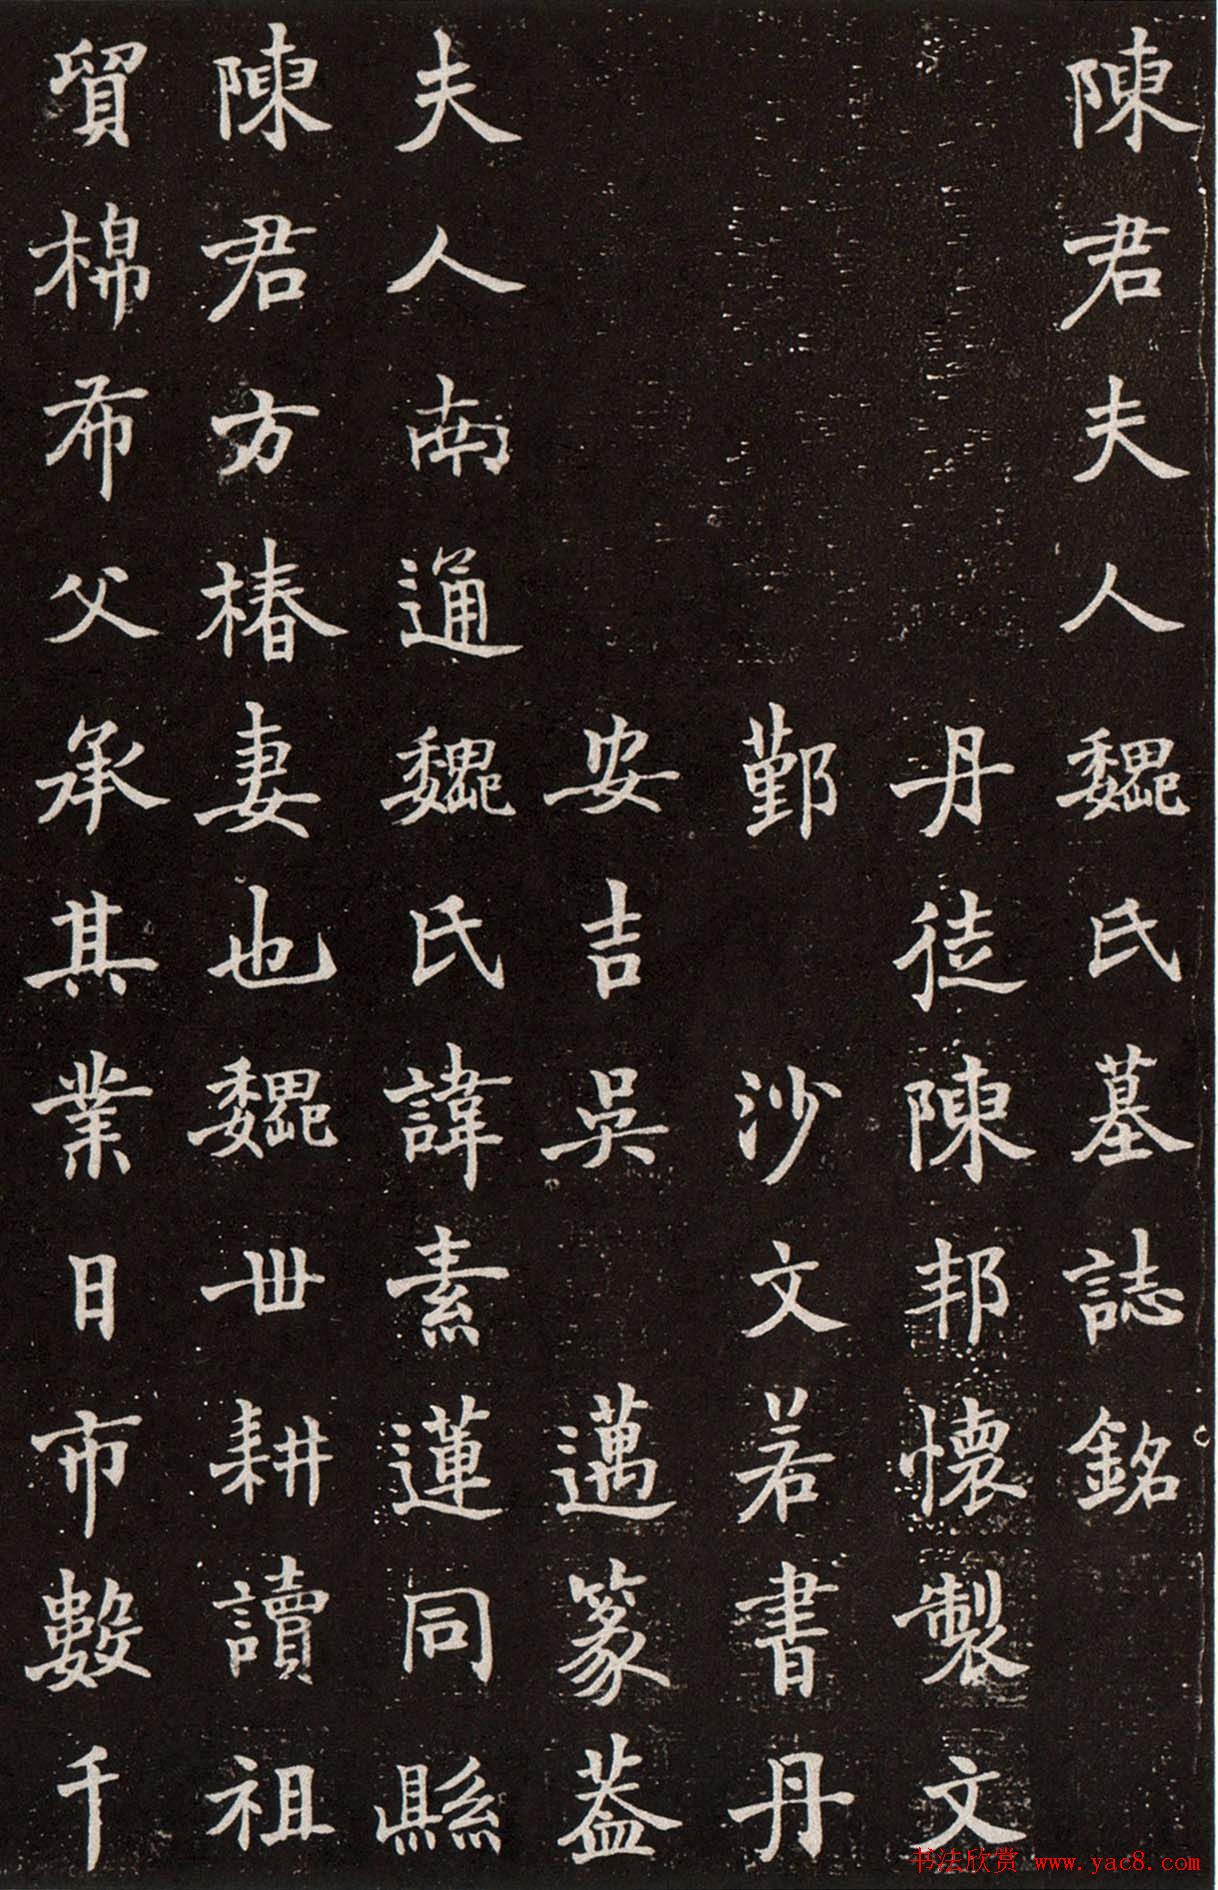 陳君夫人魏氏墓誌銘
丹徒陳邦懷製文
鄞沙文若書丹
安吉吳邁篆蓋
夫人南通魏氏諱素蓮同縣
陳君方椿妻也魏世耕讀祖
貿棉布父承其業日市數千
书法欣赏 www.yac8.com